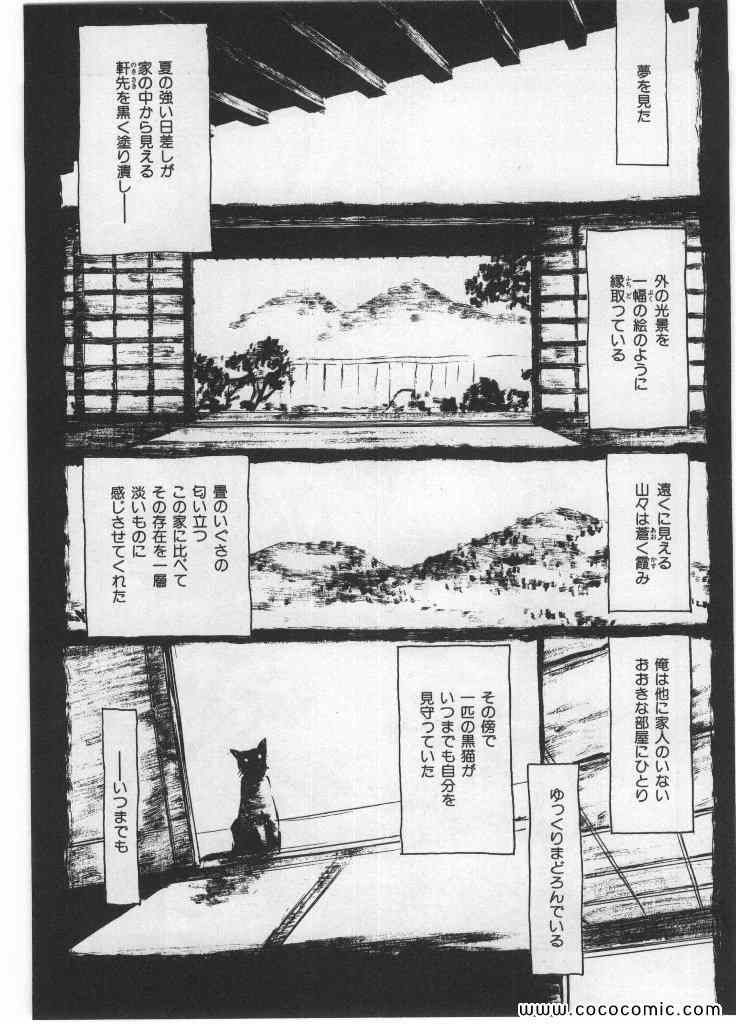 夢を見た
夏の強い日差しが
家の中から見える
軒先を黒く塗り潰し──
のきさき
外の光景を
一幅の絵のように
ぷく
縁取っている
ふちど
遠くに見える
山々は蒼く霞み
あお
かす
畳のいぐさの
匂い立つ
この家に比べて
その存在を一層
淡いものに
感じさせてくれた
俺は他に家人のいない
おおきな部屋にひとり
ゆっくりまどろんでいる
その傍で
一匹の黒猫が
いつまでも自分を
見守っていた
──いつまでも
www.cococomic.com